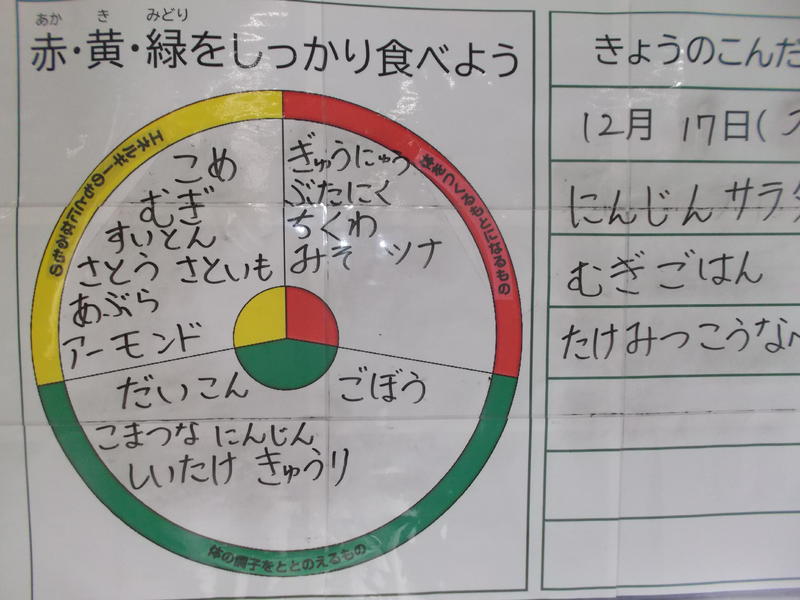 あか き みどり
赤・黄・緑をしっかり食べよう
エネルギーのもとになるもの
こめ
むぎ
すいとん
さとう さといも
あぶら
アーモンド
体をつくるもとになるもの
ぎゅうにゅう
ぶたにく
ちくわ
みそ ツナ
だいこん ごぼう
こまつな にんじん
しいたけ きゅうり
体の調子をととのえるもの
きょうのこんだ
12月 17日(
にんじんサラダ
むぎごはん
たけみつこうなべ